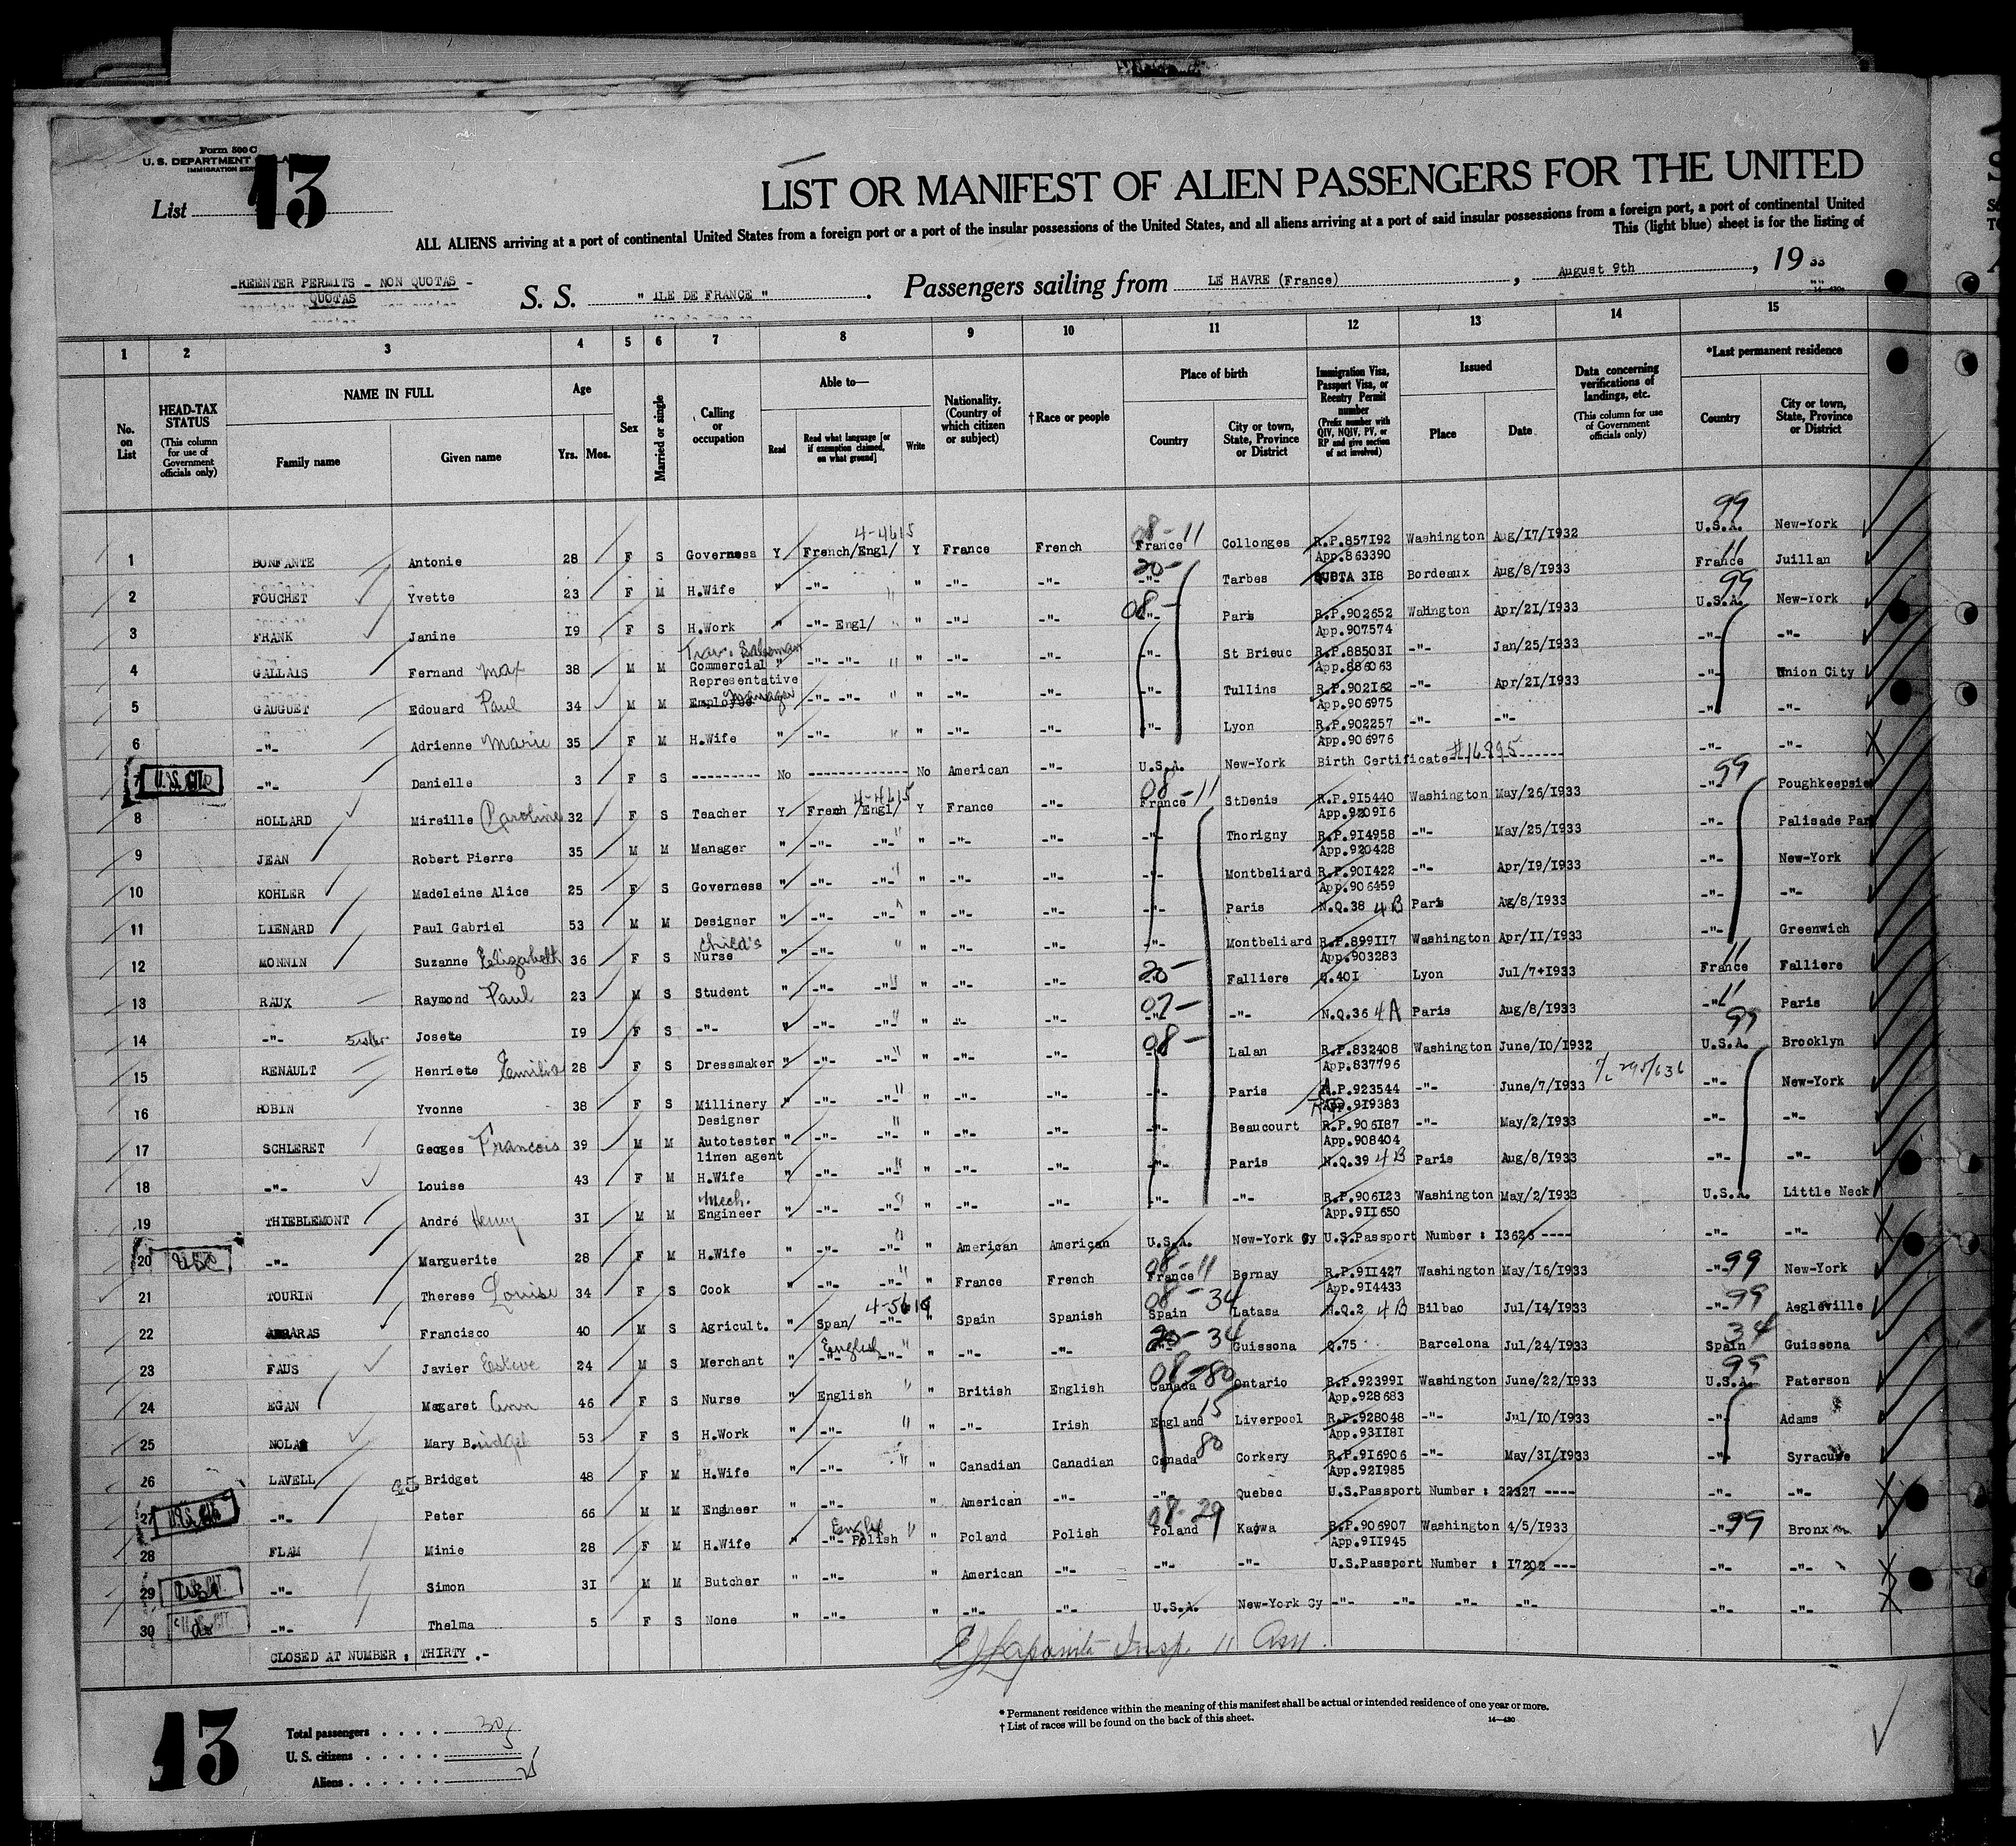 Form 500 C
U. S. DEPARTMENT
IMMIGRATION
List 13
LIST OR MANIFEST OF ALIEN PASSENGERS FOR THE UNITED
ALL ALIENS arriving at a port of continental United States from a foreign port or a port of the insular possessions of the United States, and all aliens arriving at a port of said insular possessions from a foreign port, a port of continental United
This (light blue) sheet is for the listing of
-REENTER PERMITS - NON QUOTAS -
QUOTAS
S. S. " ILE DE FRANCE ". Passengers sailing from LE HAVRE (France), August 9th, 19 33
1 2 3 4 5 6 7 8 9 10 11 12 13 14 15
No. on List
HEAD-TAX STATUS (This column for use of Government officials only)
NAME IN FULL Family name Given name
Age Yrs. Mos.
Sex
Married or single
Calling or occupation
Able to— Read Read what language [or if exemption claimed, on what ground] Write
Nationality. (Country of which citizen or subject)
† Race or people
Place of birth Country City or town, State, Province or District
Immigration Visa, Passport Visa, or Reentry Permit number (Prefix number with QIV, NQIV, PV, or RP and give section of act involved)
Issued Place Date
Data concerning verifications of landings, etc. (This column for use of Government officials only)
*Last permanent residence Country City or town, State, Province or District
1 BONFANTE Antonie 28 F S Governess Y French/Engl/ 4-4615 Y France French France 08-11 Collonges R.P.857192 App.863390 Washington Aug/17/1932 U.S.A. 99 New-York
2 FOUCHET Yvette 23 F M H.Wife " -"- " -"- -"- -"- 20- Tarbes QUOTA 318 Bordeaux Aug/8/1933 France 11 Juillan
3 FRANK Janine 19 F S H.Work " -"- Engl/ " -"- -"- -"- 08- Paris R.P.902652 App.907574 Wahington Apr/21/1933 U.S.A. 99 New-York
4 GALLAIS Fernand Max 38 M M Trav. Salesman Commercial Representative " -"- -"- " -"- -"- -"- St Brieuc R.P.885031 App.886063 -"- Jan/25/1933 -"- -"-
5 GAUGUET Edouard Paul 34 M M Employee Manager -"- -"- " -"- -"- -"- Tullins R.P.902162 App.906975 -"- Apr/21/1933 -"- Union City
6 -"- Adrienne Marie 35 F M H.Wife " -"- " -"- -"- -"- Lyon R.P.902257 App.906976 -"- -"- -"- -"-
7 U.S. CIT. -"- Danielle 3 F S --------- No ------------- No American -"- U.S.A. New-York Birth Certificate #16895 ------ -"- -"-
8 HOLLARD Mireille Caroline 32 F S Teacher Y Frech /Engl/ 4-4615 Y France -"- France 08-11 StDenis R.P.915440 App.920916 Washington May/26/1933 -"- 99 Poughkeepsie
9 JEAN Robert Pierre 35 M M Manager " -"- -"- " -"- -"- -"- Thorigny R.P.914958 App.920428 -"- May/25/1933 -"- Palisade Park
10 KOHLER Madeleine Alice 25 F S Governess " -"- -"- " -"- -"- -"- Montbeliard R.P.901422 App.906459 -"- Apr/19/1933 -"- New-York
11 LIENARD Paul Gabriel 53 M M Designer " -"- -"- " -"- -"- -"- Paris N.Q.38 4B Paris Ag/8/1933 -"- -"-
12 MONNIN Suzanne Elizabeth 36 F S Child's Nurse " -"- " -"- -"- -"- Montbeliard R.P.899117 App.903283 Washington Apr/11/1933 -"- Greenwich
13 RAUX Raymond Paul 23 M S Student " -"- -"- " -"- -"- -"- 20- Falliere Q.401 Lyon Jul/7+1933 France 11 Falliere
14 -"- Sister Josete 19 F S -"- " -"- -"- " -"- -"- -"- 07- -"- N.Q.36 4A Paris Aug/8/1933 -"- 11 Paris
15 RENAULT Henriete Emilia 28 F S Dressmaker " -"- -"- " -"- -"- -"- 08- Lalan R.P.832408 App.837796 Washington June/10/1932 U.S.A. 99 Brooklyn
16 ROBIN Yvonne 38 F S Millinery Designer " -"- -"- " -"- -"- -"- Paris R.P.923544 App.919383 -"- June/7/1933 295/636 -"- New-York
17 SCHLERET Georges Francois 39 M M Autotester linen agent " -"- -"- " -"- -"- -"- Beaucourt R.P.906187 App.908404 -"- May/2/1933 -"- -"-
18 -"- Louise 43 F M H.Wife " -"- -"- " -"- -"- -"- Paris N.Q.39 4B Paris Aug/8/1933 -"- -"-
19 THIEBLEMONT André Henry 31 M M Mech. Engineer " -"- -"- " -"- -"- -"- -"- R.P.906123 App.911650 Washington May/2/1933 U.S.A. Little Neck
20 USC -"- Marguerite 28 F M H.Wife " -"- -"- " American American U.S.A. New-York Cy U.S.Passport Number : 13626 ---- -"- -"-
21 TOURIN Therese Louise 34 F S Cook " -"- -"- " France French France 08-11 Bernay R.P.911427 App.914433 Washington May/16/1933 -"- 99 New-York
22 ARRARAS Francisco 40 M S Agricult. " Span/ -"- 4-5616 " Spain Spanish Spain 08-34 Latasa N.Q.2 4B Bilbao Jul/14/1933 -"- 99 Aegleville
23 FAUS Javier Esteve 24 M S Merchant " -"- English -"- " -"- -"- -"- 20-34 Guissona Q.75 Barcelona Jul/24/1933 Spain 34 Guissona
24 EGAN Magaret Ann 46 F S Nurse " English " British English Canada 08-80 Ontario R.P.923991 App.928683 Washington June/22/1933 U.S.A. 99 Paterson
25 NOLAN Mary Bridget 53 F S H.Work " -"- " -"- Irish England 15 Liverpool R.P.928048 App.931181 -"- Jul/10/1933 -"- Adams
26 LAVELL 45 Bridget 48 F M H.Wife " -"- " Canadian Canadian Canada 80 Corkery R.P.916906 App.921985 -"- May/31/1933 -"- Syracuse
27 U.S. CIT. -"- Peter 66 M M Engineer " -"- " American -"- -"- Quebec U.S.Passport Number : 22327 ---- -"- -"-
28 FLAM Minie 28 F M H.Wife " -"- Polish English " Poland Polish Poland 08-29 Kaowa R.P.906907 App.911945 Washington 4/5/1933 -"- 99 Bronx
29 -"- Simon 31 M M Butcher " -"- " American -"- -"- -"- U.S.Passport Number : 17202 --- -"- -"-
30 -"- Thelma 5 F S None " -"- " -"- -"- U.S.A. New-York Cy -"- -"- -"- -"- -"- -"-
CLOSED AT NUMBER : THIRTY .-
Insp.
13
Total passengers . . . . 30
U. S. citizens . . . . . 5
Aliens . . . . . . 25
* Permanent residence within the meaning of this manifest shall be actual or intended residence of one year or more.
† List of races will be found on the back of this sheet.
14—430